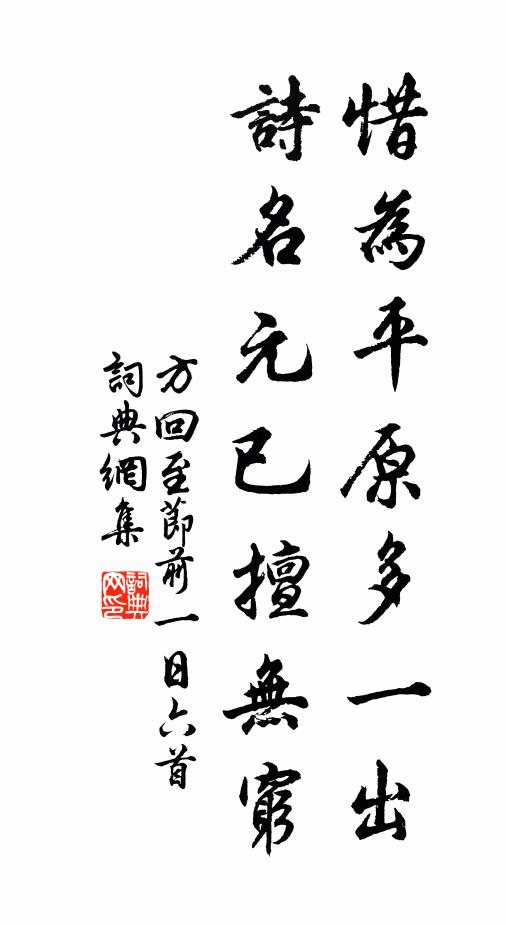 惜為平原多一出
詩名元已擅無窮
方回至節前一日六首
詞典網集
詞典网印